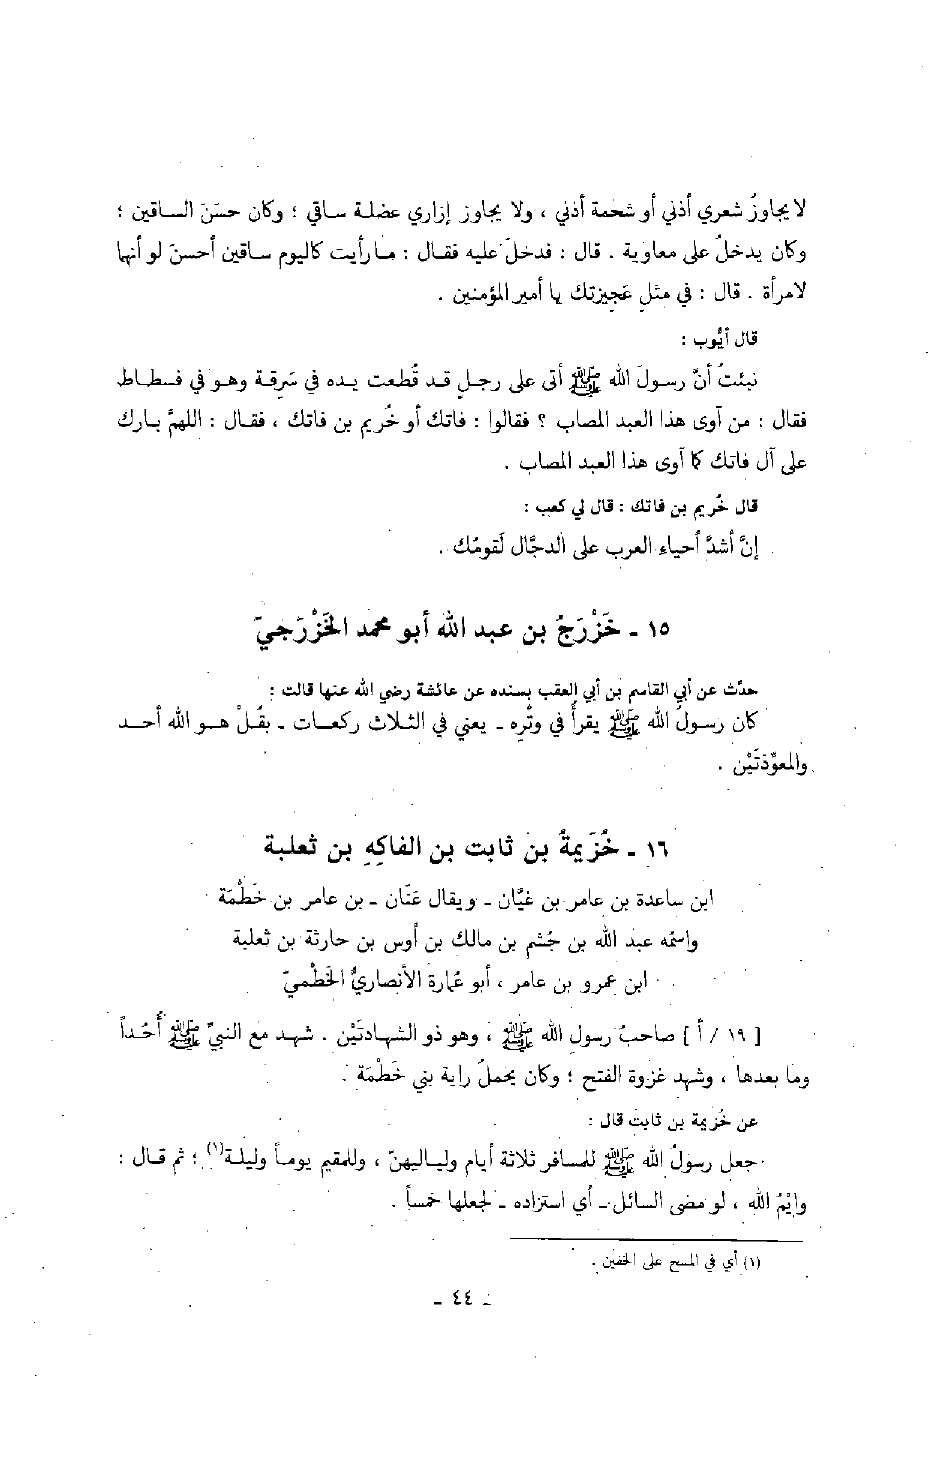 لا يجاوزُ شعري أذني أو شحمة أذني ، ولا يجاوز إزاري عضلة ساقي ؛ وكان حسَنَ الساقين ؛
وكان يدخلُ على معاوية . قال : فدخلَ عليه فقال : مارأيت كاليوم ساقين أحسنَ لو أنها
لامرأة . قال : في مثلِ عَجيزتك يا أمير المؤمنين .
قال أيُّوب :
نبئتُ أنَّ رسولَ الله ﷺ أتى على رجلٍ قد قُطعت يده في سَرِقة وهو في فسطاط
فقال : من آوى هذا العبد المصاب ؟ فقالوا : فاتك أو خُريم بن فاتك ، فقال : اللهمَّ بارك
على آل فاتك كما آوى هذا العبد المصاب .
قال خُريم بن فاتك : قال لي كعب :
إنَّ أشدَّ أحياءِ العرب على الدجَّال لَقومُك .
١٥ - خَزْرَجُ بن عبد الله أبو محمد الخَزْرَجيّ
حدَّث عن أبي القاسم بن أبي العقب بسنده عن عائشة رضي الله عنها قالت :
كان رسولُ الله ﷺ يقرأُ في وتْره - يعني في الثلاث ركعات - بقُلْ هو الله أحد
والمعوِّذتَيْن .
١٦ - خُزَيمةُ بن ثابت بن الفاكِهِ بن ثعلبة
ابن ساعدة بن عامر بن غَيَّان - ويقال عَنَان - بن عامر بن خَطْمَة
واسمُه عبد الله بن جُشم بن مالك بن أوس بن حارثة بن ثعلبة
ابن عمرو بن عامر ، أبو عُمارة الأنصاريُّ الخَطْميّ
[ ١٩ / أ ] صاحبُ رسول الله ﷺ ، وهو ذو الشهادتَيْن . شهد مع النبيِّ ﷺ أُحُداً
وما بعدها ، وشهد غزوة الفتح ؛ وكان يحملُ راية بني خَطْمَة .
عن خُزيمة بن ثابت قال :
جعل رسولُ الله ﷺ للمسافر ثلاثة أيام ولياليهنّ ، وللمقيم يوماً وليلة(١) ؛ ثم قال :
وايْمُ الله ، لو مضى السائل - أي استزاده - لجعلها خمساً .
(١) أي في المسح على الخفين .
- ٤٤ -